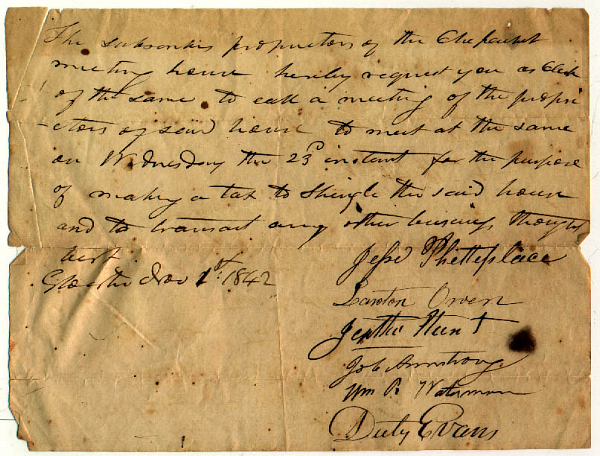 The subscribers proprietors of the Chepachet
meeting house hereby request you as Clerk
of the same to call a meeting of the propri
etors of said house to meet at the same
on Wednesday the 23d instant for the purpose
of making a tax to Shingle the said house
and to transact any other business thought
best.
Glocester Nov 1st. 1842
Jesse Phetteplace
Lawton Owen
Hunt
Job Armstrong
Wm P. Waterman
Duty Evans